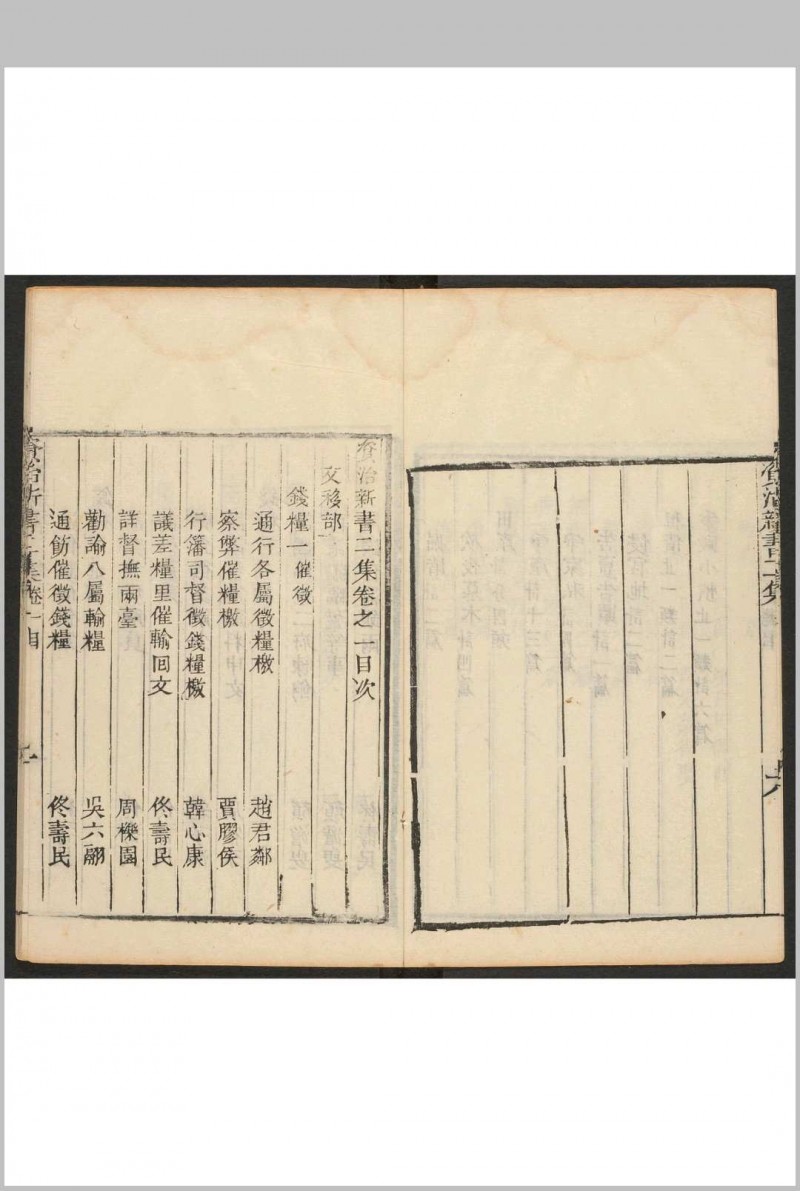 資治新書二集
六
資治新書二集卷之一目次
文移部
錢糧一催徵
通行各屬徵糧檄 趙君鄰
察弊催糧檄 賈膠侯
行藩司督徵錢糧檄 韓心康
議差糧里催輸回文 佟壽民
詳督撫兩臺 周櫟園
勸諭八屬輸糧 吳六翮
通飭催徵錢糧 佟壽民
資治新書二集 卷一目